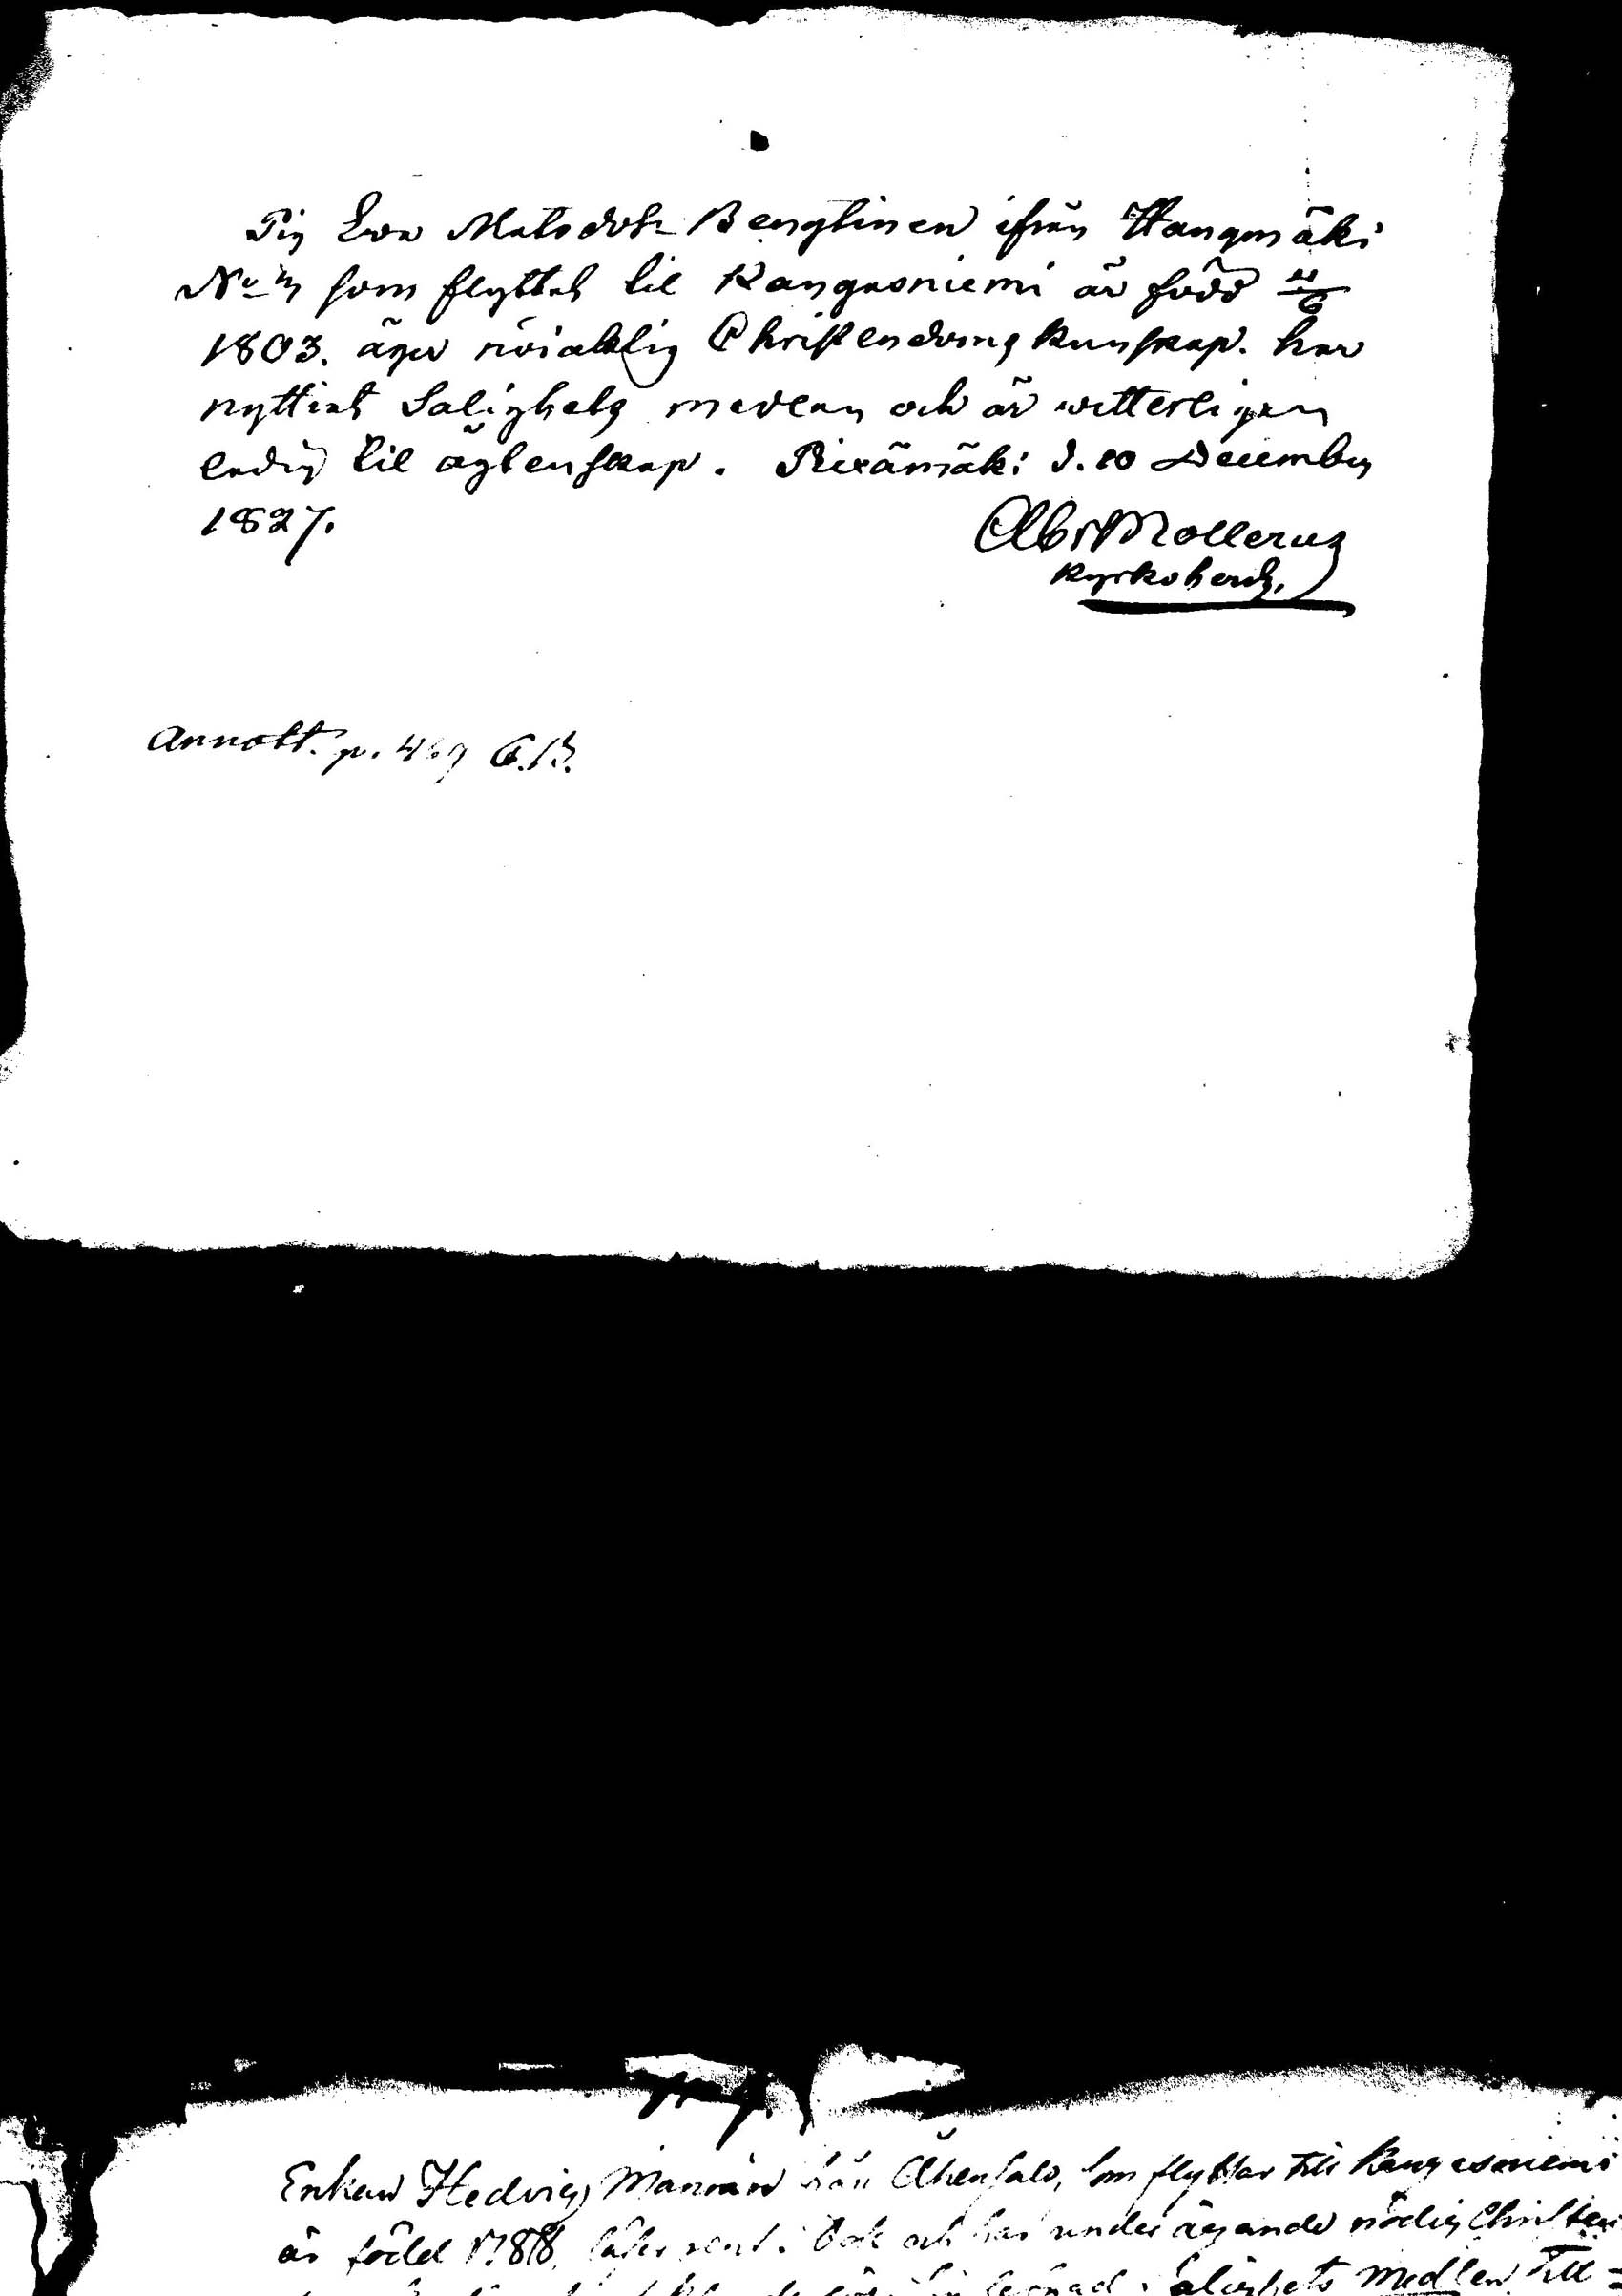 Pig Ewa Matsdotr Bengtinen ifrån Hangmäki
No som flyttat til Kangasniemi är född
1803. äger nöiaktig Christendoms kunskap. har
nyttiat Salighets medlen och är witterligen
ledig til ägtenskap. Piexämäki d. 10 December
1827.
Abr Mollerus
Kyrkoherde.
Annott. p. 469 C.B.
Enkan Hedvig Manninen från som flyttar till Kangasniemi
är född 1788, läser rent i bok och har under ägande nödig Christen
Salighets Medlen till=